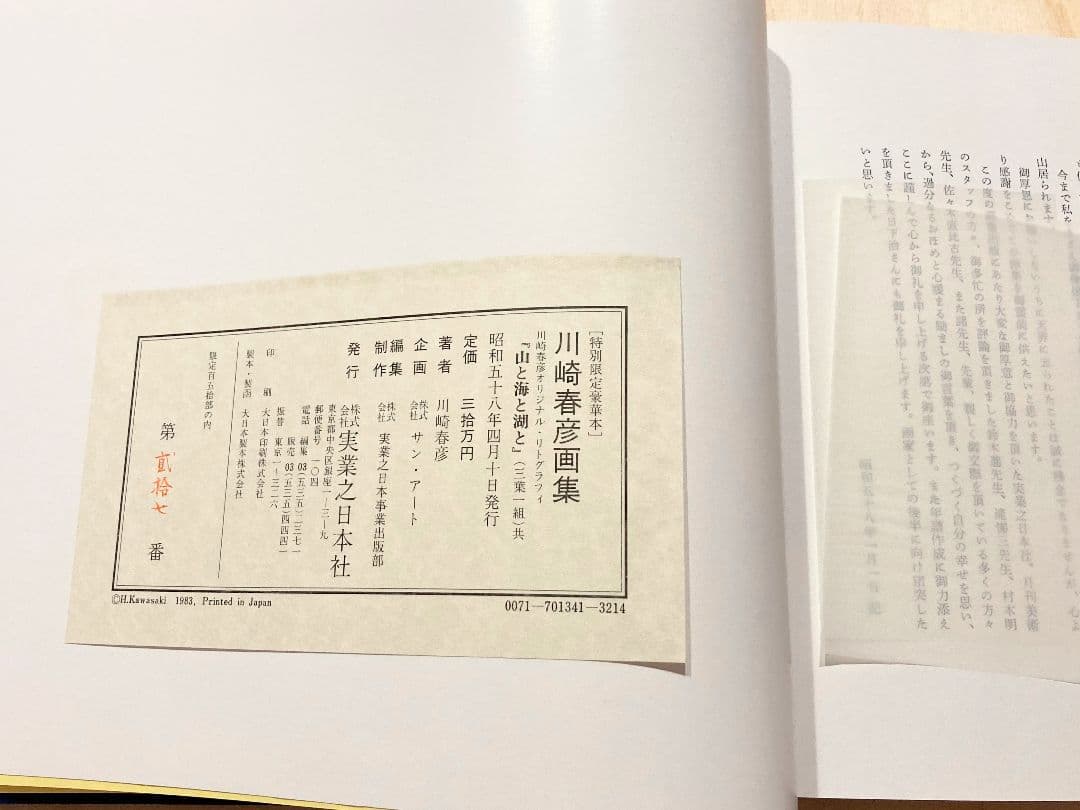 ［特別限定豪華本］
川崎春彦画集
川崎春彦オリジナル・リトグラフィ
『山と海と湖と』（三葉一組）共
昭和五十八年四月十日発行
定価 三拾万円
著者 川崎春彦
企画 株式会社 サン・アート
編集
制作 株式会社 実業之日本事業出版部
発行 株式会社 実業之日本社
東京都中央区銀座一−三−九
郵便番号 一〇四
電話 編集 03(五三五)二三七一
販売 03(五三五)四四四一
振替 東京一−三二六
印刷 大日本印刷株式会社
製本・製函 大日本製本株式会社
限定百五拾部の内
第 貳拾七 番
©H.Kawasaki 1983, Printed in Japan
0071—701341—3214
今まで私を
山居られます
御厚恩に
り感謝をこ
この度の
にあたり大変な御厚意と御協力を頂いた実業之日本社、月刊美術
のスタッフの方々、御多忙の済を評論を頂きました鈴木進先生、瀧悌三先生、村木明
先生、佐々木直比古先生、また諸先生、先輩、親しく御交際を頂いている多くの方々
から、過分なるおほめと心暖まる励ましの御言葉を頂き、つくづく自分の幸せを思い、
ここに謹しんで心から御礼を申し上げる次第で御座います。また年譜作成に御力添え
を頂きました日下治さんにも御礼を申し上げます。画家としての後半に向け頂戴した
いと思います。
昭和五十八年一月一日 記